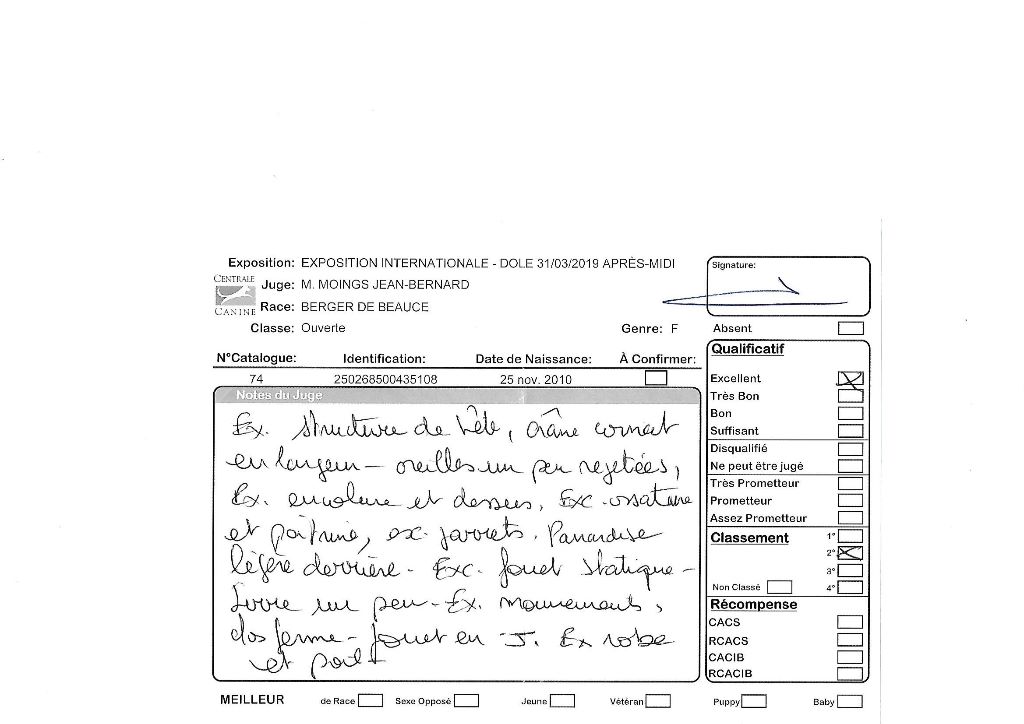 Exposition: EXPOSITION INTERNATIONALE - DOLE 31/03/2019 APRÈS-MIDI
CENTRALE
CANINE
Juge: M. MOINGS JEAN-BERNARD
Race: BERGER DE BEAUCE
Classe: Ouverte Genre: F
N°Catalogue: Identification: Date de Naissance: À Confirmer:
74 250268500435108 25 nov. 2010
Notes du Juge
Ex. structure de tête, crâne correct
en largeur - oreilles un peu rejetées,
Ex. encolure et dessus, Exc ossature
et poitrine, ex. jarrets. Panardise
légère derrière - Exc. fouet statique -
un peu - Ex. mouvements,
dos ferme - fouet en J. Ex robe
et poil
Signature:
Absent
Qualificatif
Excellent
Très Bon
Bon
Suffisant
Disqualifié
Ne peut être jugé
Très Prometteur
Prometteur
Assez Prometteur
Classement 1°
2°
3°
Non Classé 4°
Récompense
CACS
RCACS
CACIB
RCACIB
MEILLEUR de Race Sexe Opposé Jeune Vétéran Puppy Baby